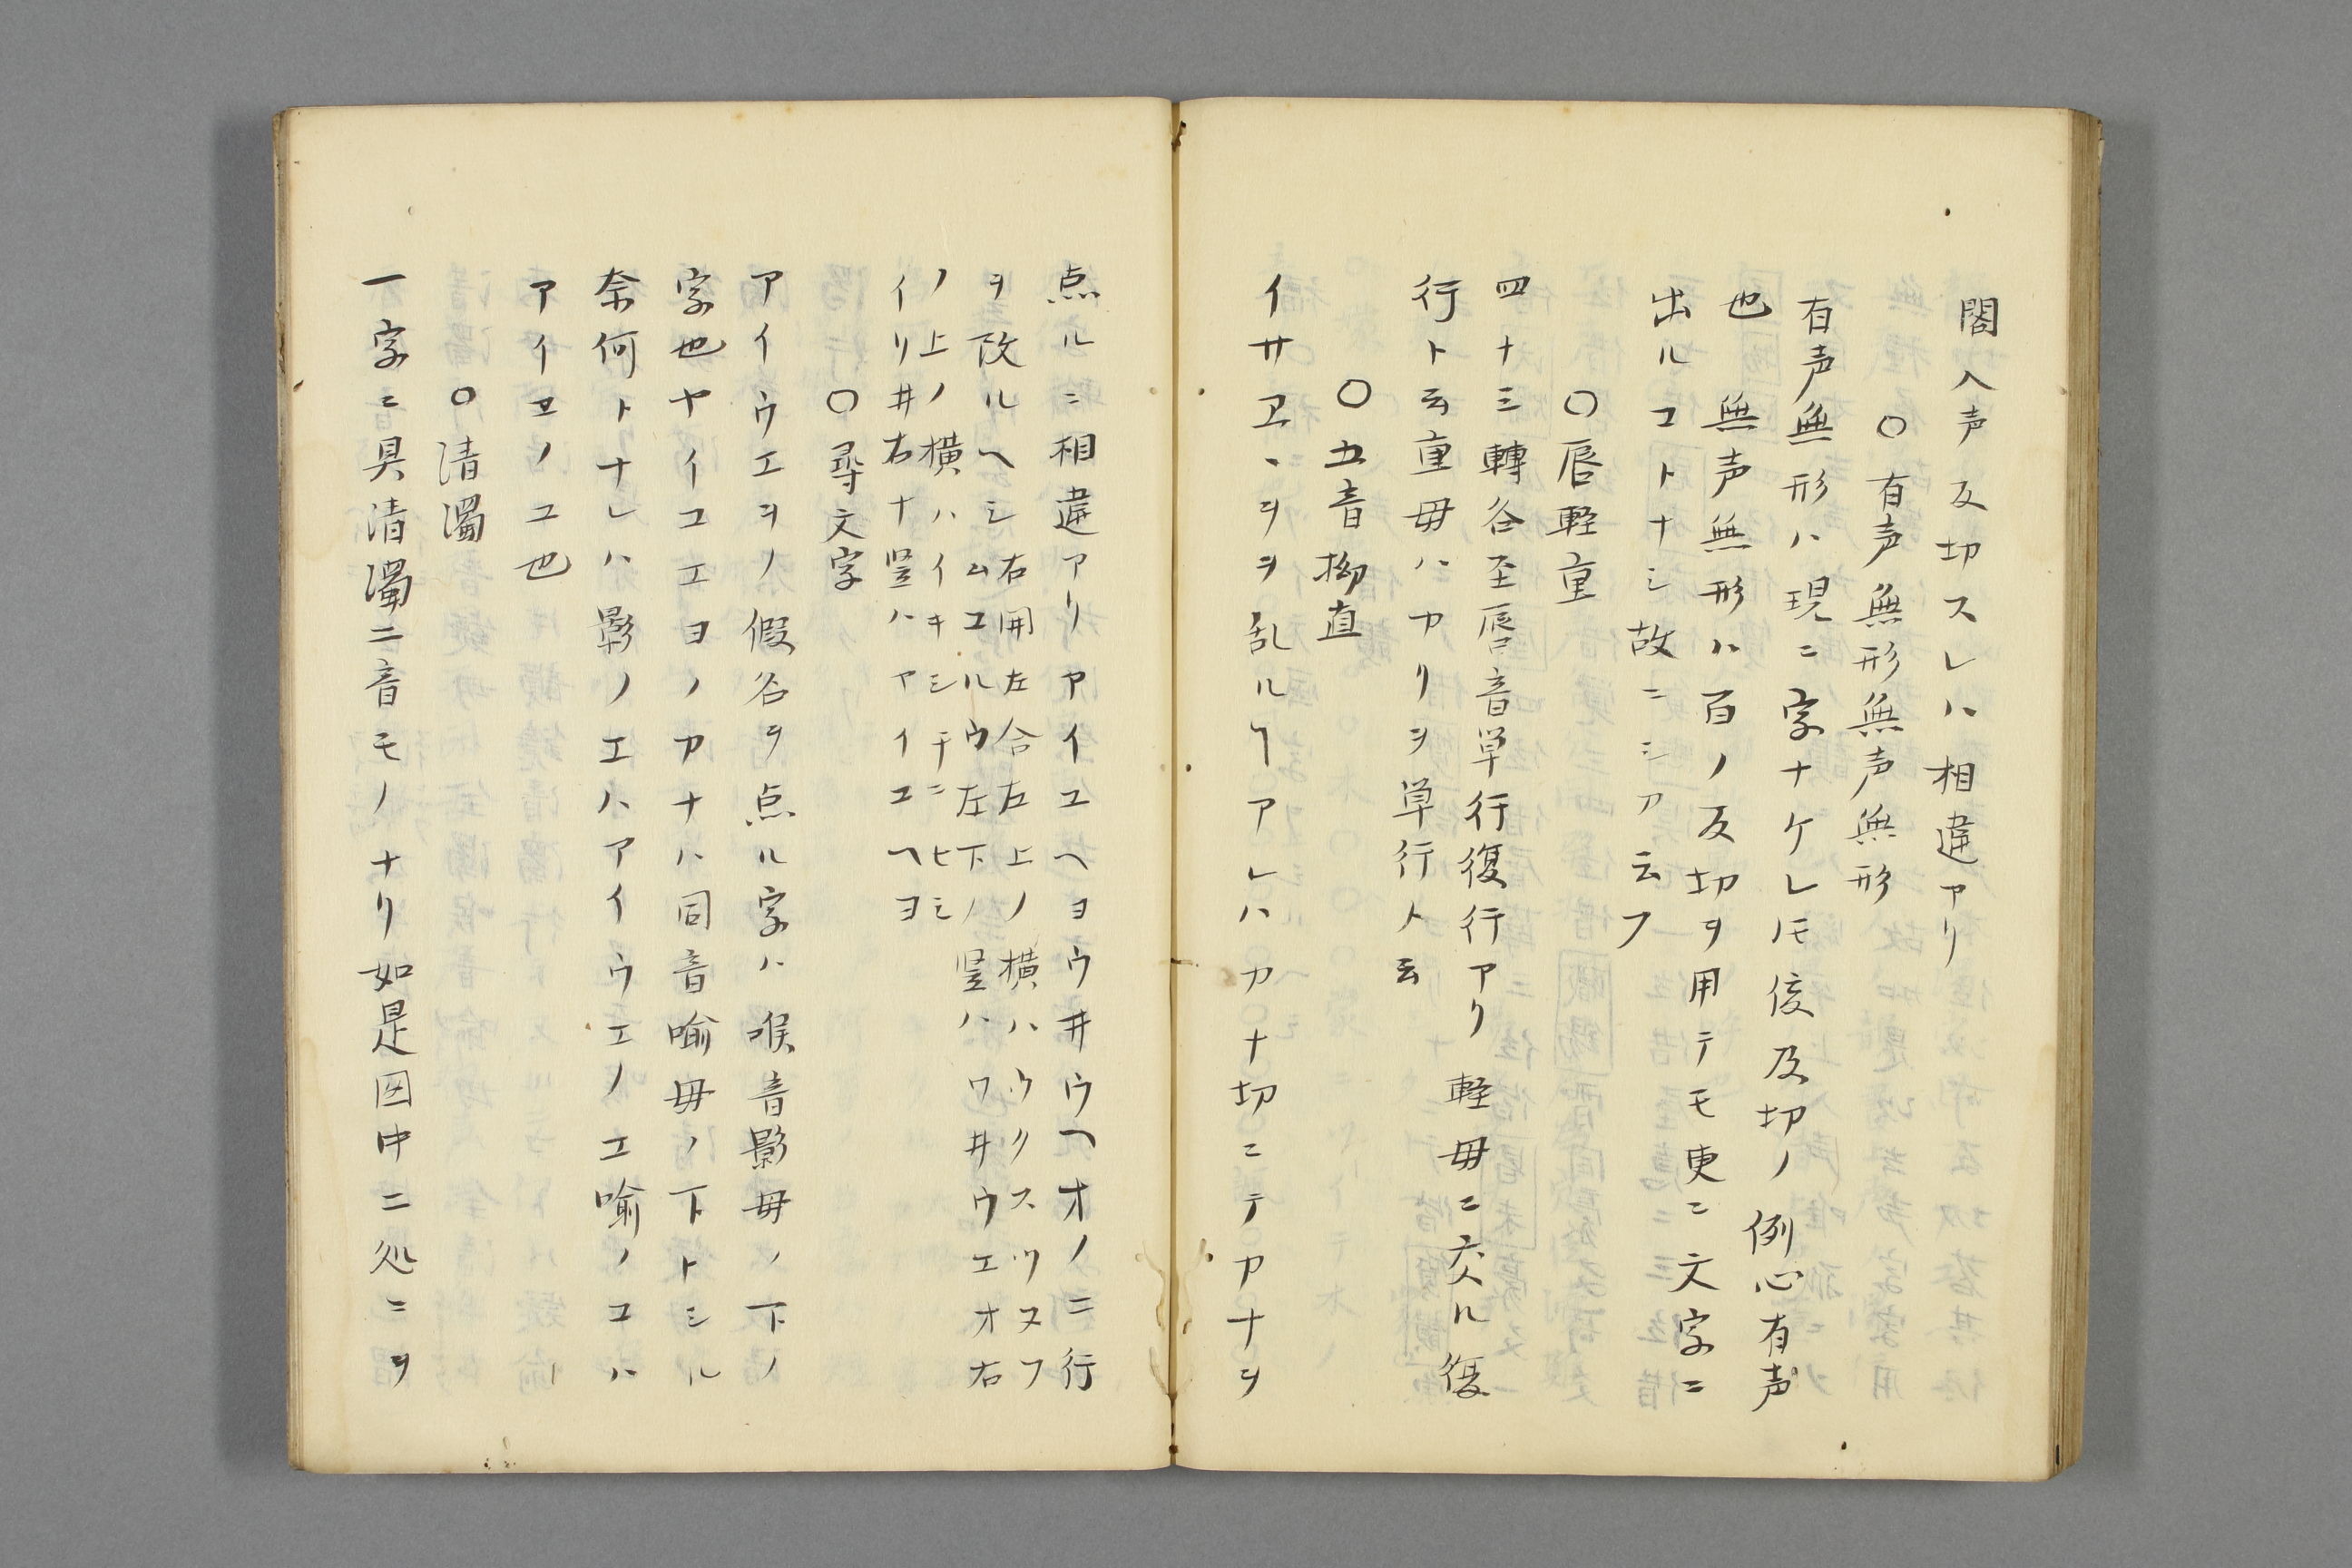 閤入声反切スレハ相違アリ
〇有声無形無声無形
有声無形ハ現ニ字ナケレ𪜈後及切ノ例心有声
也 無声無形ハ百ノ反切ヲ用テモ更ニ文字ニ
出ルコトナシ故ニシカ云フ
〇唇軽重
四十三轉各至唇音単行復行アリ軽毋ニ交ル復
行ト云重毋ハカリヲ単行ト云
〇五音拗直
イサヱヽヲヲ乱ルヿアレハカナ切ニテカナヲ
点ルニ相違アリアイユヘヨウ井ウヘオノ二行
ヲ改ルヘシ 右開左合右上ノ横ハウクスツヌフ
ムユルウ左下ノ竪ハワ井ウエオ右
ノ上ノ横ハイキシチニヒミ
イリ井右ナ竪ハアイユヘヨ
〇尋文字
アイウエヲノ假名ヲ点ル字ハ喉音影毋ノ下ノ
字也ヤイユエヨノカナハ同音喻毋ノ下トシル
奈何トナレハ影ノエハアイウエノエ喻ノユハ
アイヱノユ也
〇清濁
一字ニ具清濁二音モノナリ如是因中二処ニヲ